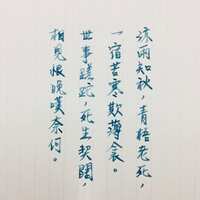 涼雨知秋，青梧老死，
一宿苦寒欺薄衾。
世事蹉跎，死生契闊，
相見恨晚嘆奈何。